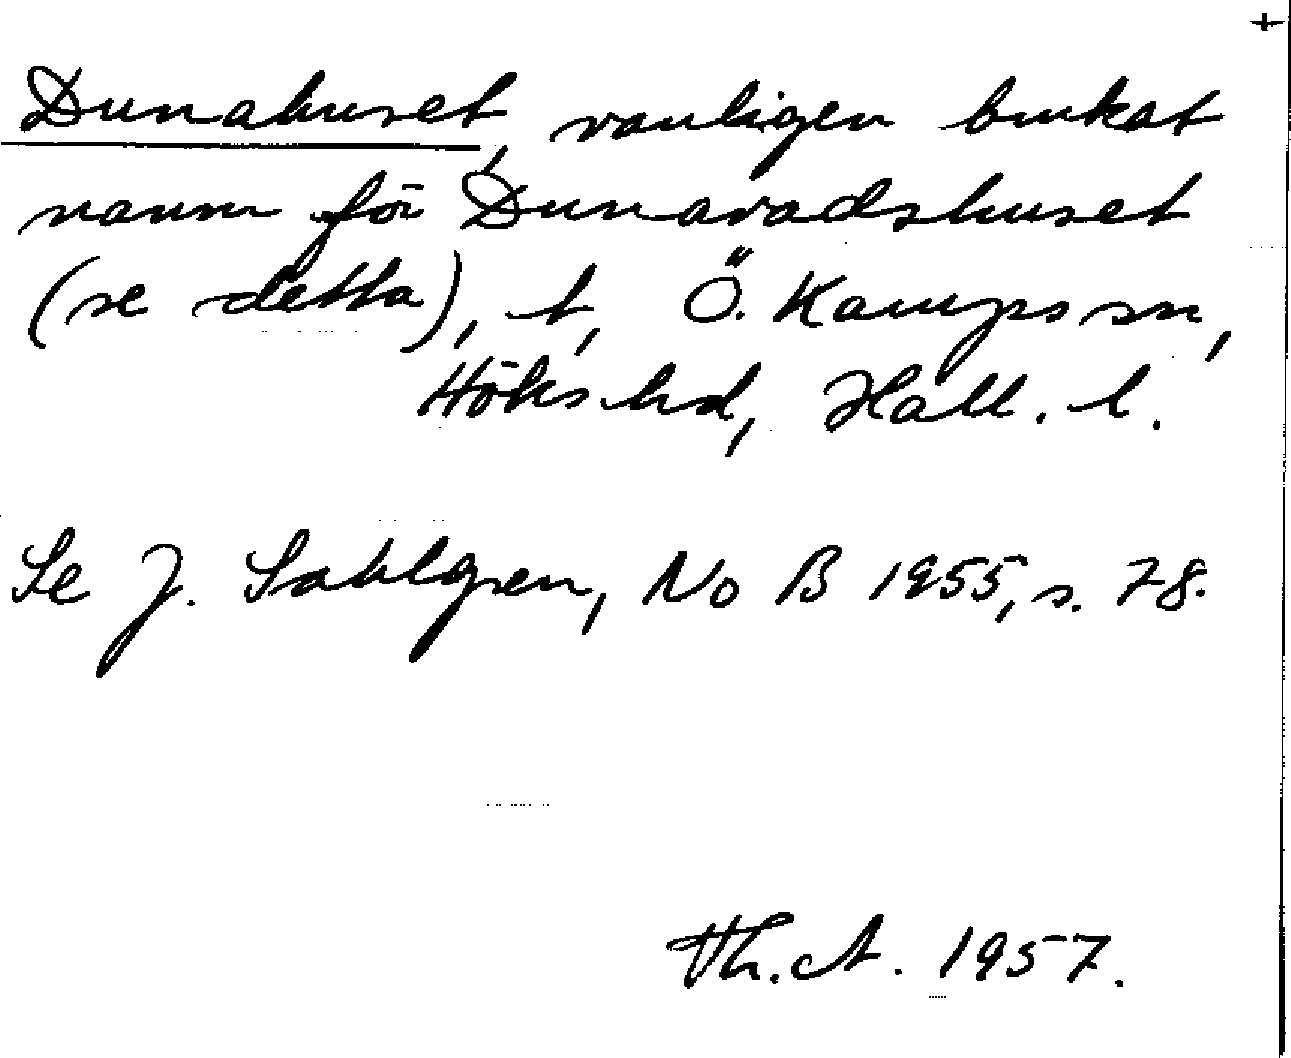 +
Dunahuset, vanligen brukat
namn för Dunavadshuset
(se detta), t, Ö. Karups sn,
Höks hd, Hall. l.
Se J. Sahlgren, No B 1955, s. 78.
Th. A. 1957.